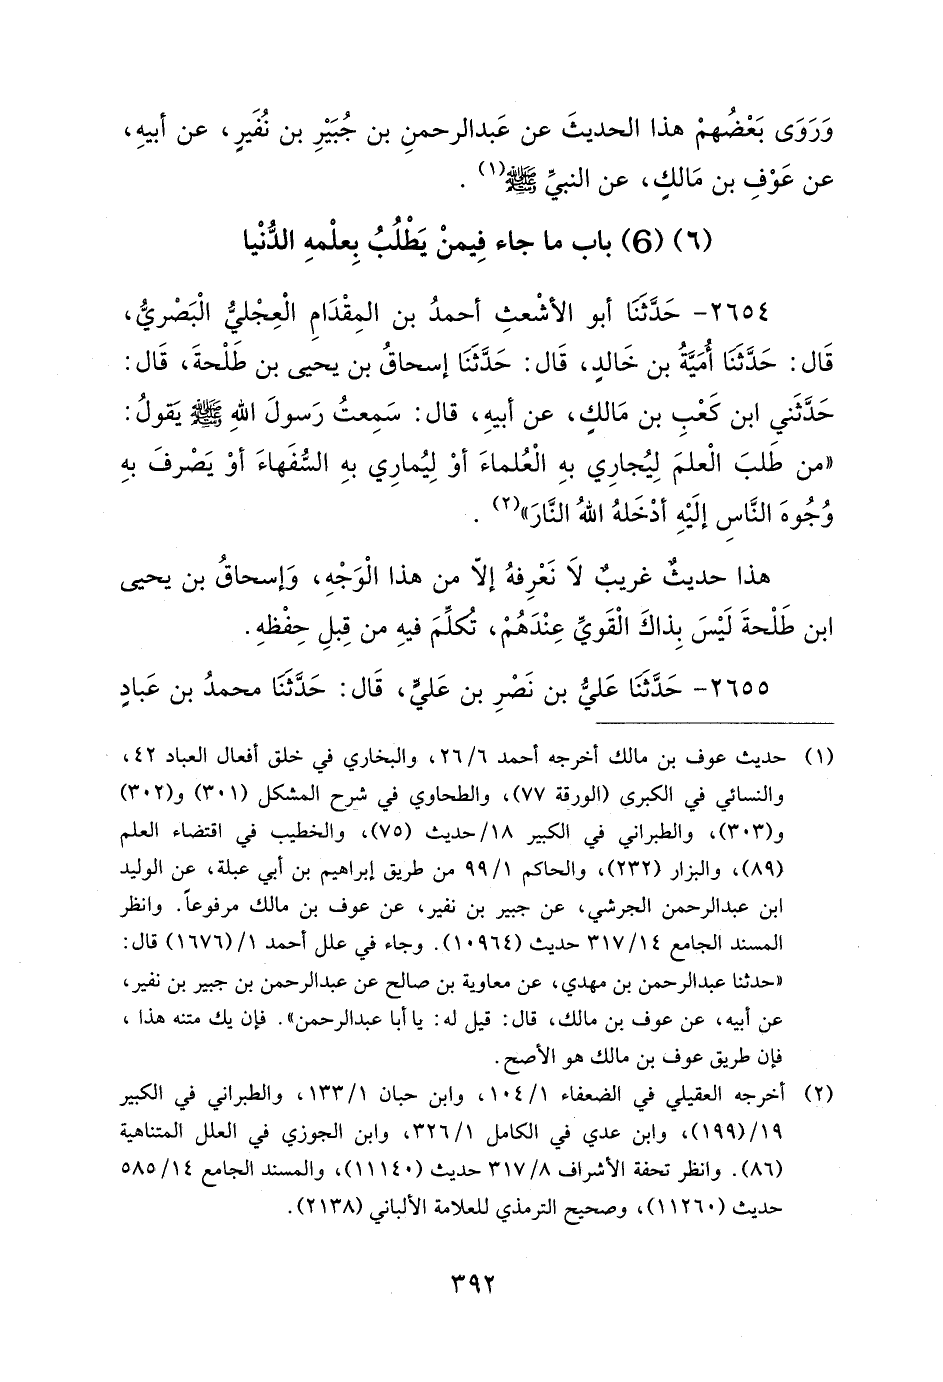 وَرَوَى بَعْضُهمْ هذا الحديثَ عن عَبدالرحمنِ بن جُبَيْرِ بن نُفَيرٍ، عن أبيهِ،
عن عَوْفِ بن مَالكٍ، عن النبيِّ ﷺ(١) .
(٦) (6) باب ما جاء فِيمنْ يَطْلُبُ بِعلْمهِ الدُّنْيا
٢٦٥٤- حَدَّثَنَا أبو الأشْعثِ أحمدُ بن المِقْدَامِ الْعِجْليُّ الْبَصْريُّ،
قَال: حَدَّثَنَا أُمَيَّةُ بن خَالدٍ، قَال: حَدَّثَنَا إسحاقُ بن يحيى بن طَلْحةَ، قَال:
حَدَّثَني ابن كَعْبِ بن مَالكٍ، عن أبيهِ، قال: سَمِعتُ رَسولَ اللهِ ﷺ يَقولُ:
«من طَلبَ الْعلمَ لِيُجاري بهِ الْعُلماءَ أوْ لِيُماري بهِ السُّفهاءَ أوْ يَصْرفَ بهِ
وُجُوهَ النَّاسِ إلَيْهِ أدْخَلهُ اللهُ النَّارَ»(٢) .
هذا حديثٌ غريبٌ لاَ نَعْرفهُ إلاّ من هذا الْوَجْهِ، وَإسحاقُ بن يحيى
ابن طَلْحةَ لَيْسَ بِذاكَ الْقويِّ عِنْدَهُمْ، تُكلِّمَ فيهِ من قِبلِ حِفْظهِ.
٢٦٥٥- حَدَّثَنَا عَليُّ بن نَصْرِ بن عَليٍّ، قَال: حَدَّثَنَا محمدُ بن عَبادٍ
(١) حديث عوف بن مالك أخرجه أحمد ٢٦/٦، والبخاري في خلق أفعال العباد ٤٢،
والنسائي في الكبرى (الورقة ٧٧)، والطحاوي في شرح المشكل (٣٠١) و(٣٠٢)
و(٣٠٣)، والطبراني في الكبير ١٨/حديث (٧٥)، والخطيب في اقتضاء العلم
(٨٩)، والبزار (٢٣٢)، والحاكم ٩٩/١ من طريق إبراهيم بن أبي عبلة، عن الوليد
ابن عبدالرحمن الجرشي، عن جبير بن نفير، عن عوف بن مالك مرفوعاً. وانظر
المسند الجامع ٣١٧/١٤ حديث (١٠٩٦٤). وجاء في علل أحمد ١/(١٦٧٦) قال:
«حدثنا عبدالرحمن بن مهدي، عن معاوية بن صالح عن عبدالرحمن بن جبير بن نفير،
عن أبيه، عن عوف بن مالك، قال: قيل له: يا أبا عبدالرحمن». فإن يك متنه هذا ،
فإن طريق عوف بن مالك هو الأصح.
(٢) أخرجه العقيلي في الضعفاء ١٠٤/١، وابن حبان ١٣٣/١، والطبراني في الكبير
١٩/(١٩٩)، وابن عدي في الكامل ٣٢٦/١، وابن الجوزي في العلل المتناهية
(٨٦). وانظر تحفة الأشراف ٣١٧/٨ حديث (١١١٤٠)، والمسند الجامع ٥٨٥/١٤
حديث (١١٢٦٠)، وصحيح الترمذي للعلامة الألباني (٢١٣٨).
٣٩٢